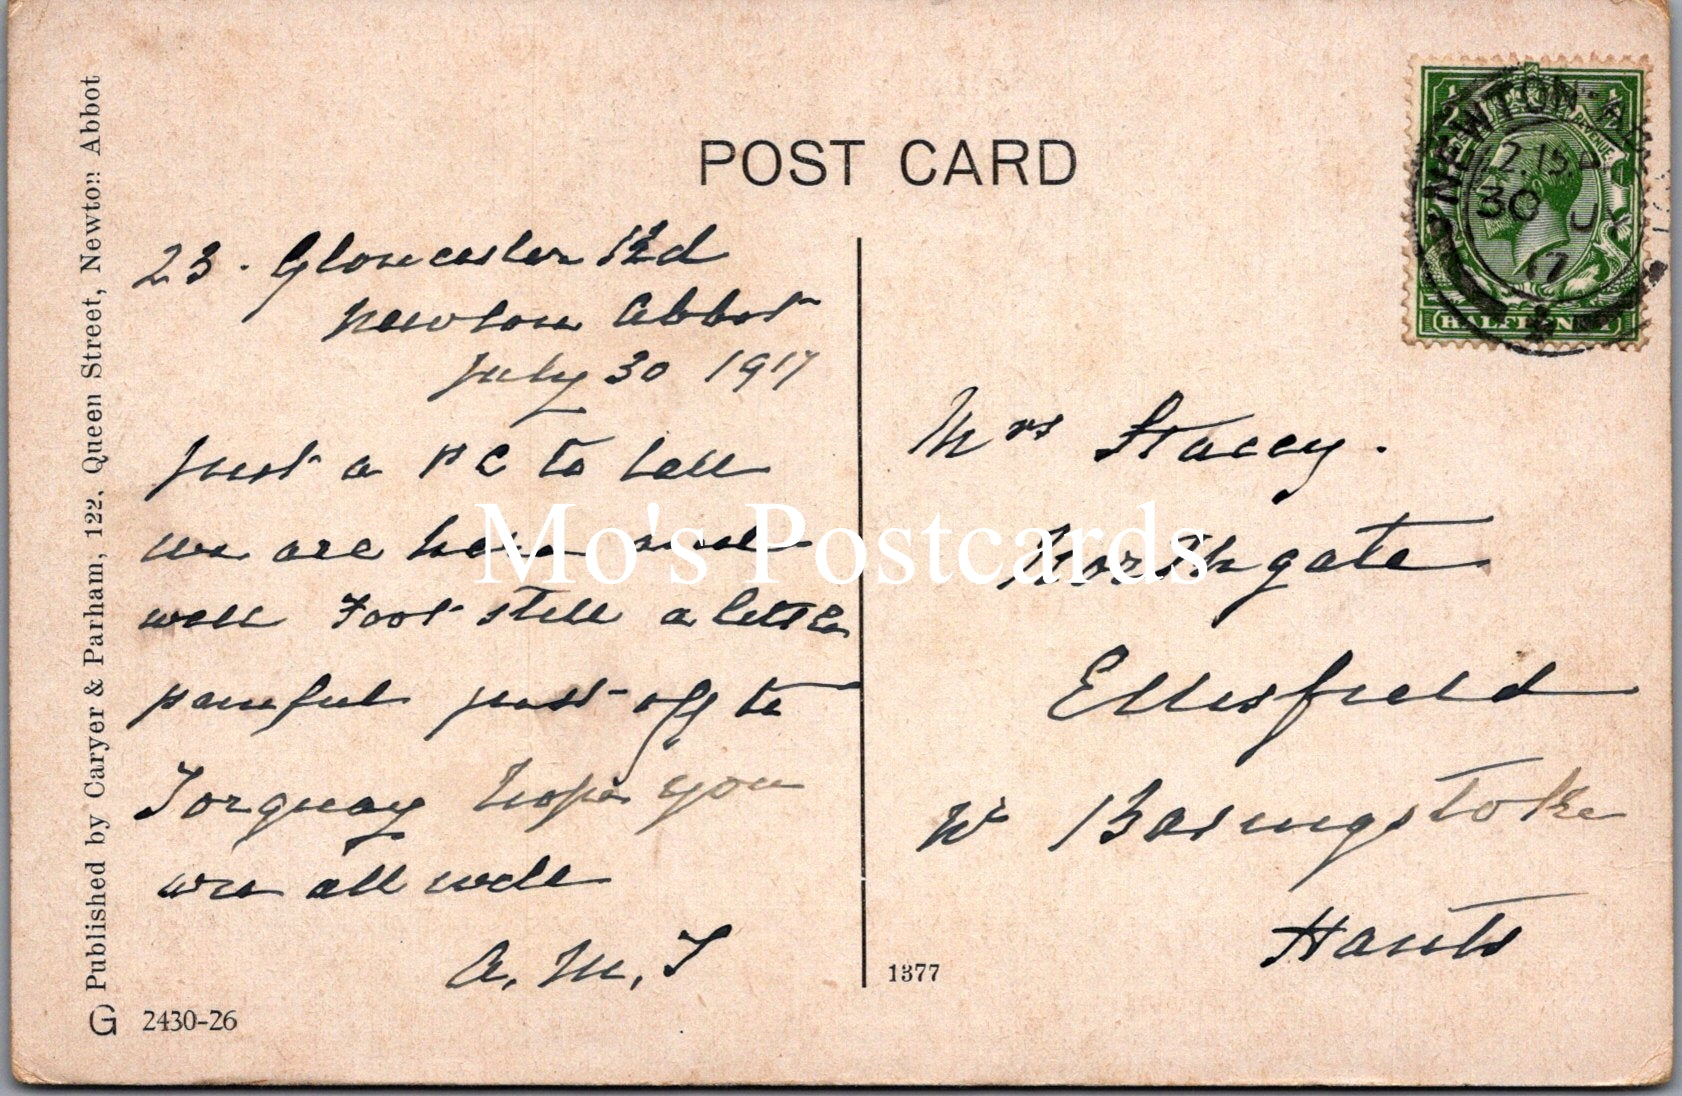 POST CARD
23. Gloucester Rd
Newton Abbot
July 30 1917
Just a PC to tell
we are here and
well Foot still a little
painful just off to
Torquay hope you
are all well
A. M. T
Mrs Stacey.
Northgate
Ellisfield
Nr Basingstoke
Hants
1377
G 2430-26
Published by Caryer & Parham, 122, Queen Street, Newton Abbot
NEWTON
2.15
30 JY
17
HALFPENNY
REVENUE
Mo's Postcards